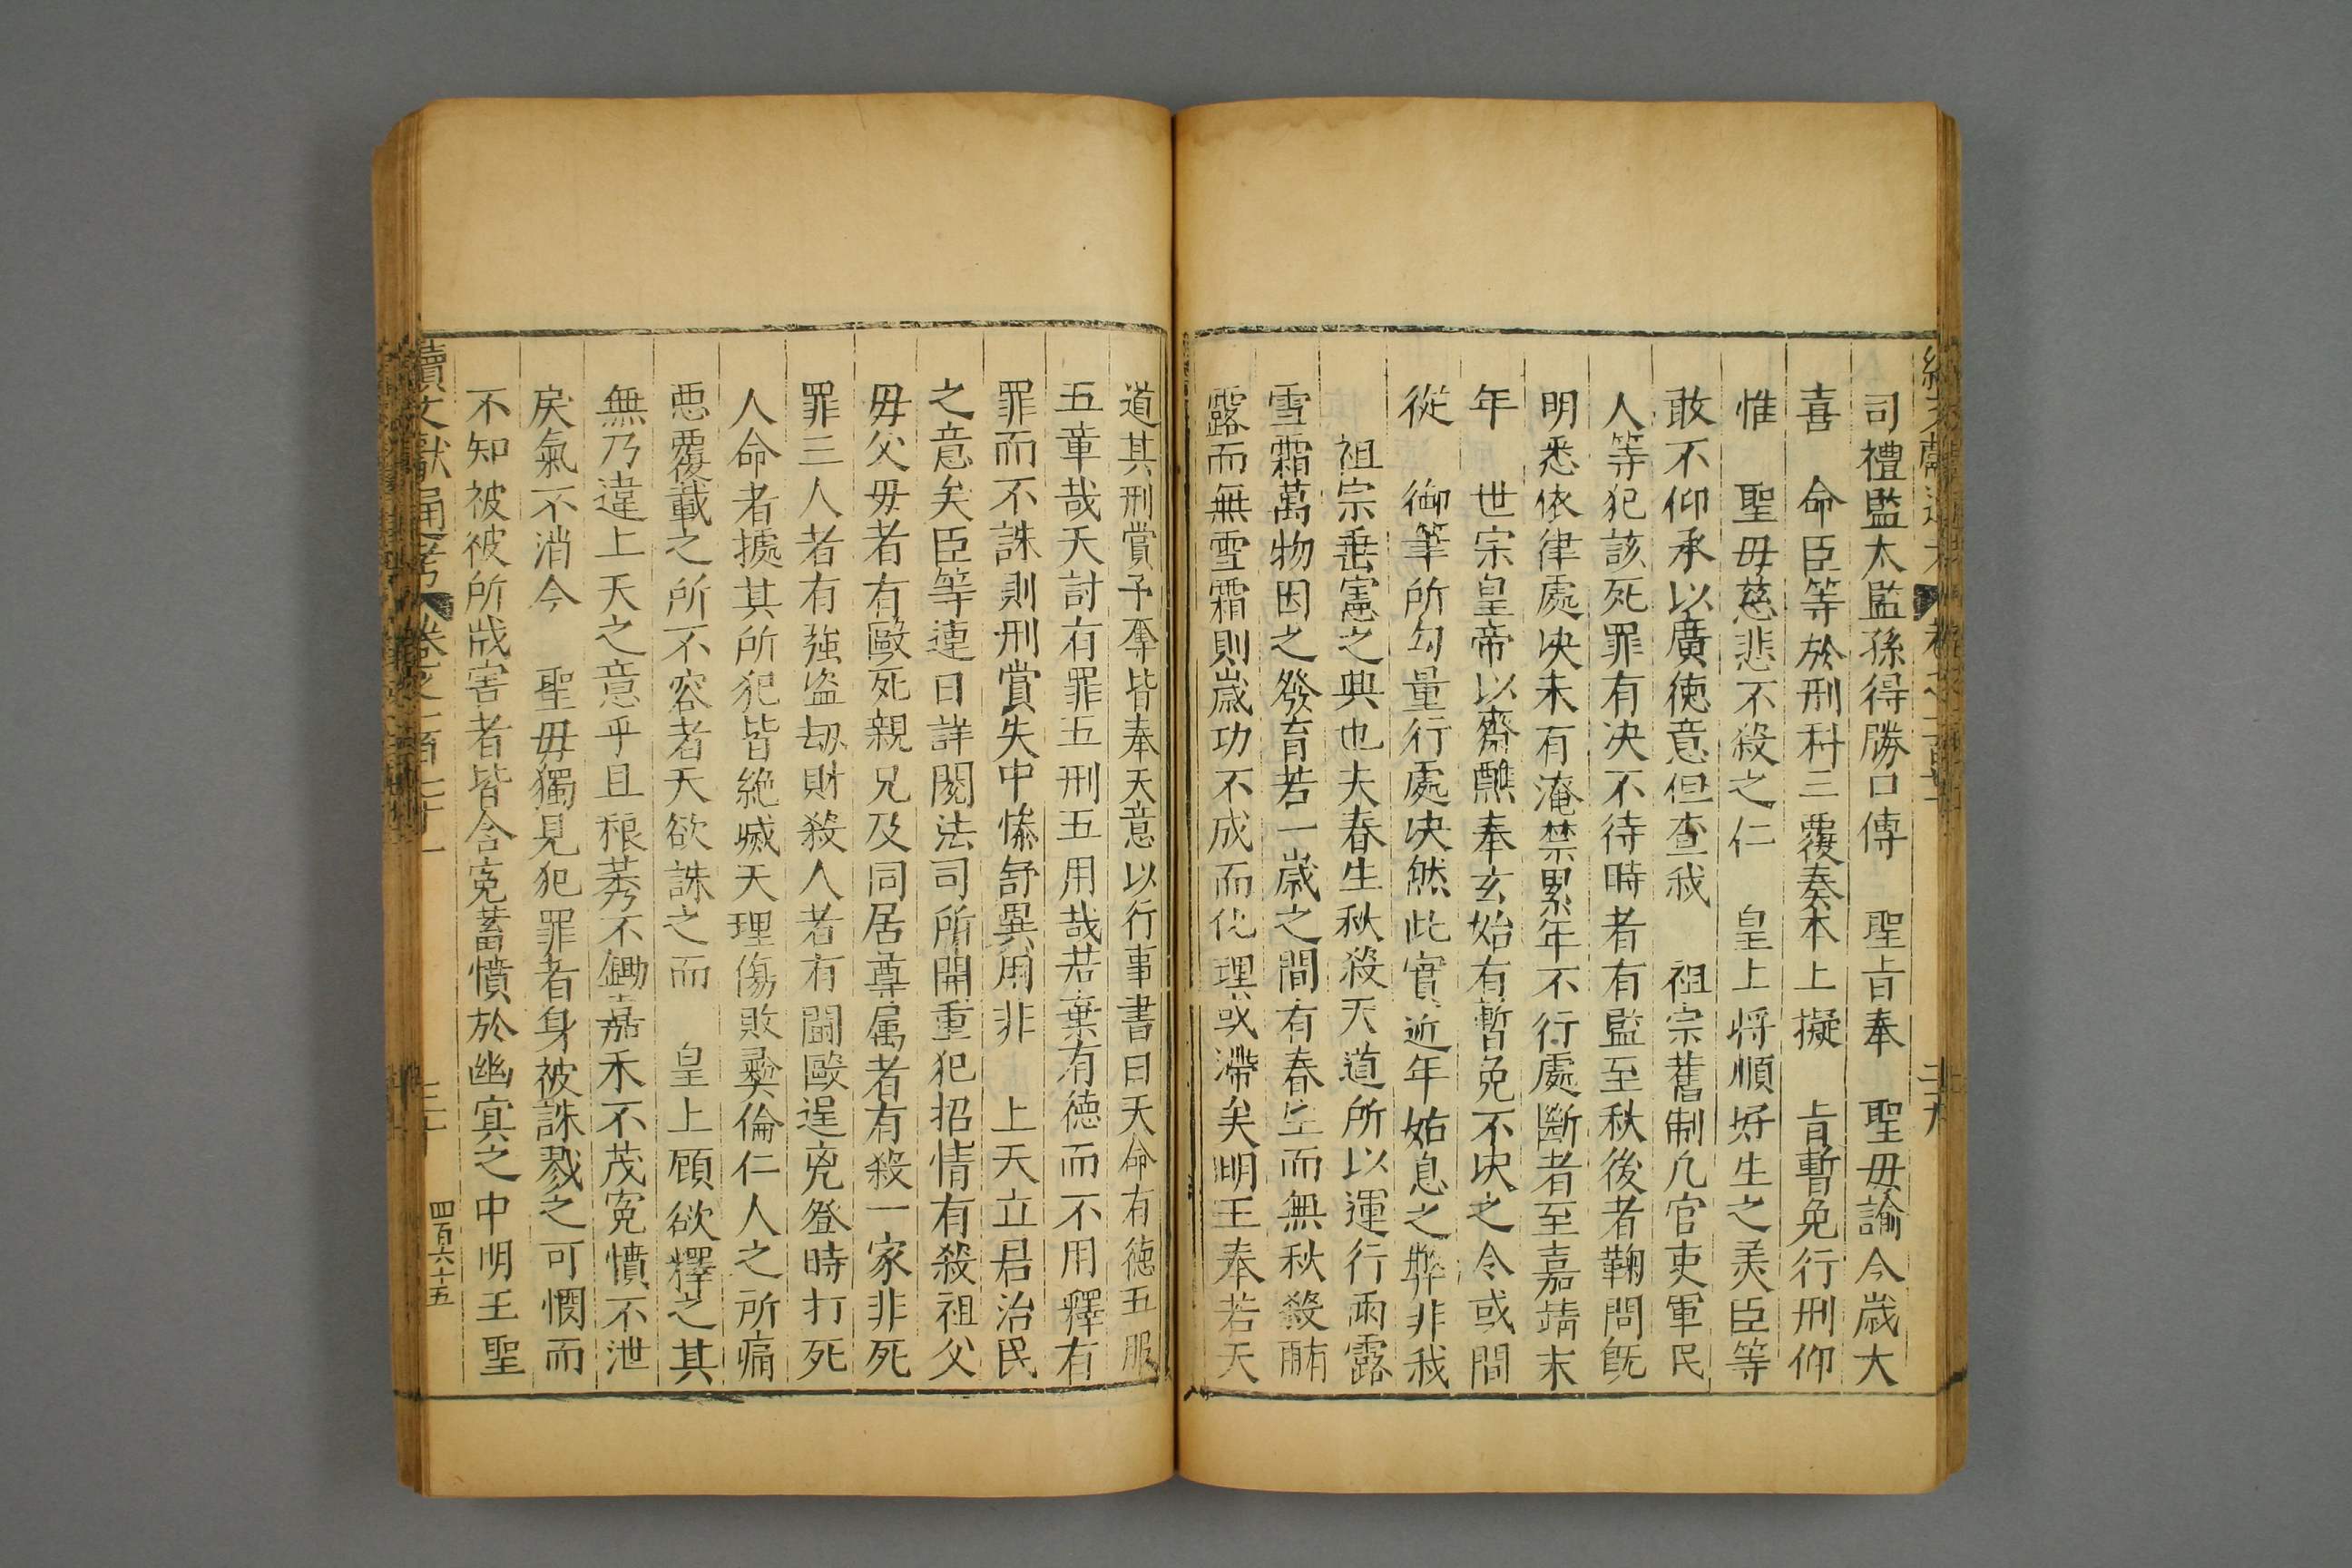 司禮監太監孫得勝口傳　聖旨奉　聖母諭今歲大
喜　命臣等於刑科三覆奏本上擬　旨暫免行刑仰
惟　聖母慈悲不殺之仁　皇上将順好生之美臣等
敢不仰承以廣德意但查我　祖宗舊制凢官吏軍民
人等犯該死罪有决不待時者有監至秋後者鞠問旣
明悉依律處决未有淹禁累年不行處斷者至嘉靖末
年　世宗皇帝以齋醮奉玄始有暫免不决之令或間
從　御筆所勾量行處决然此實近年姑息之弊非我
祖宗垂憲之典也夫春生秋殺天道所以運行雨露
雪霜萬物因之發育若一歲之間有春生而無秋殺有雨
露而無雪霜則歲功不成而化理或滯矣明王奉若天
道其刑賞予奪皆奉天意以行事書曰天命有德五服
五章哉天討有罪五刑五用哉若棄有德而不用釋有
罪而不誅則刑賞失中慘舒異用非　上天立君治民
之意矣臣等連日詳閱法司所開重犯招情有殺祖父
母父母者有毆死親兄及同居尊属者有殺一家非死
罪三人者有強盗刼財殺人者有鬪毆逞兇登時打死
人命者據其所犯皆絶㓕天理傷敗彛倫仁人之所痛
惡覆載之所不容者天欲誅之而　皇上頋欲釋之其
無乃違上天之意乎且稂莠不鋤嘉禾不茂寃憤不泄
戾氣不消今　聖母獨見犯罪者身被誅戮之可憫而
不知被彼所戕害者皆含寃蓄憤於幽冥之中明王聖
續文獻通考　卷之一百七十一　三十　四百六十五